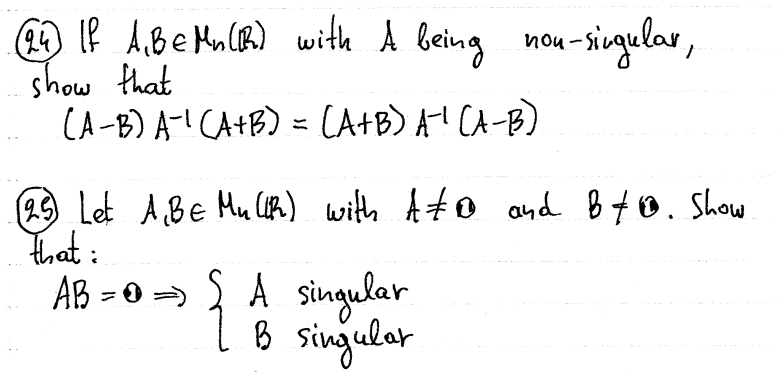 (24) If A,B ∈ Mn(ℝ) with A being non-singular,
show that
(A-B) A⁻¹ (A+B) = (A+B) A⁻¹ (A-B)
(25) Let A,B ∈ Mn(ℝ) with A ≠ 𝟘 and B ≠ 𝟘. Show
that:
AB = 𝟘 ⇒ { A singular
B singular